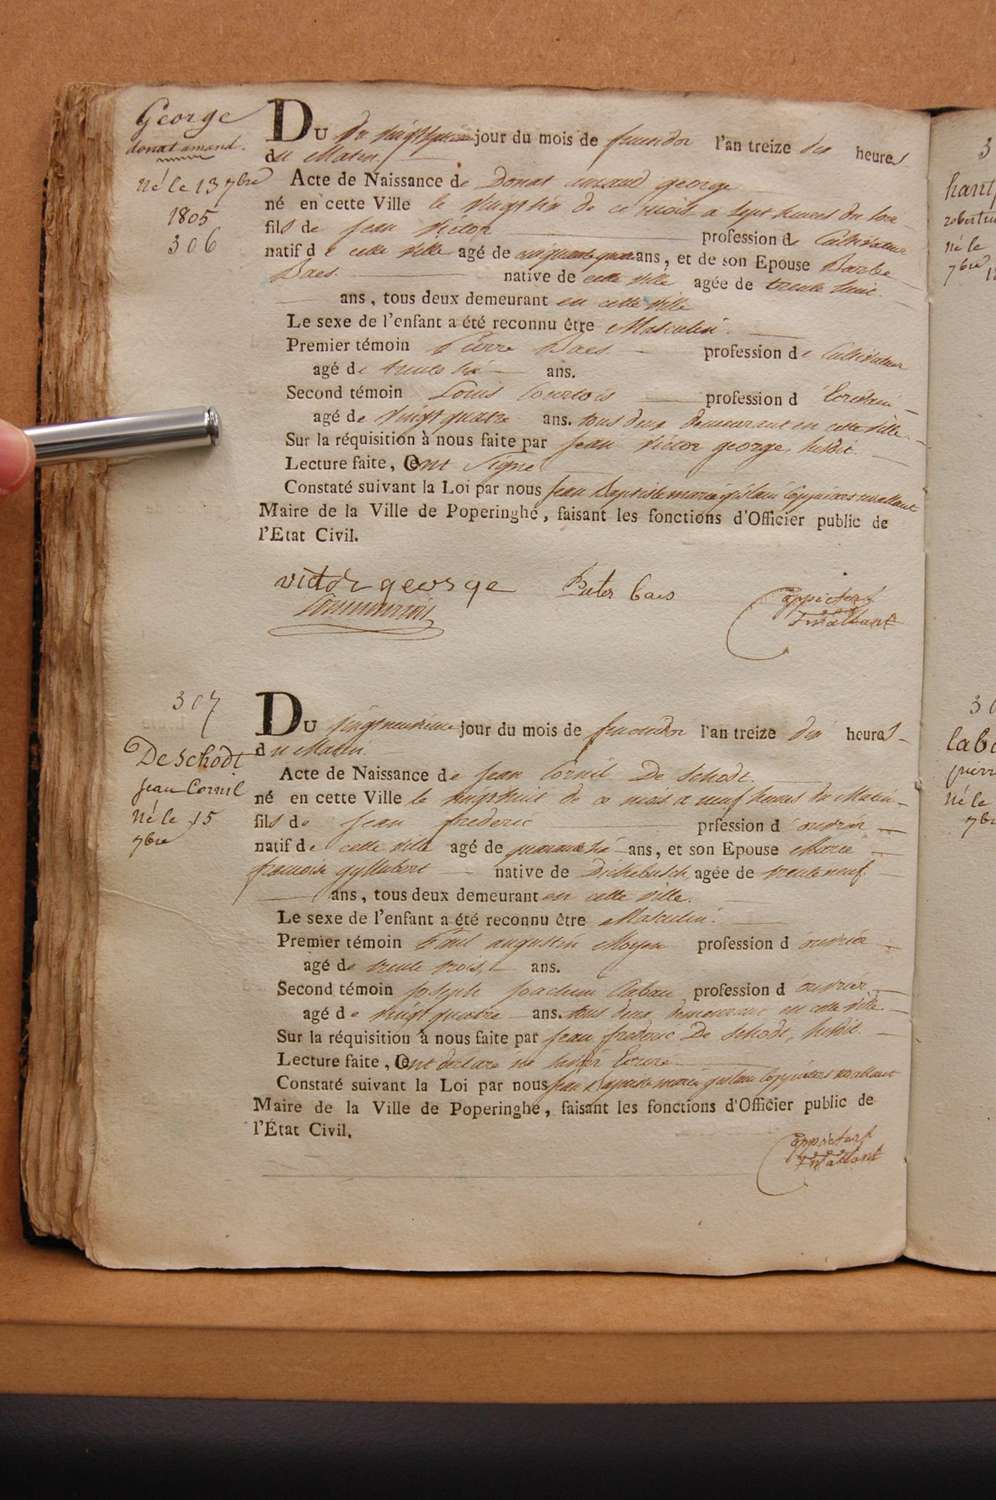 George
donat amand.
né le 13 7bre
1805
306
Du vingt jour du mois de fructidor l'an treize dix heures
du Matin
Acte de Naissance de Donat amand george
né en cette Ville le vingt six de ce mois a sept heures du soir
fils de Jean Victor profession de Cultivateur
natif de cette ville agé de cinquante quatre ans, et de son Epouse Barbe
Baes native de cette ville agée de trente huit
ans, tous deux demeurant en cette ville
Le sexe de l'enfant a été reconnu être Masculin.
Premier témoin Pierre Baes profession de Cultivateur
agé de trente six ans.
Second témoin Louis Courtois profession d Ecrivain
agé de vingt quatre ans. tous deux demeurant en cette ville
Sur la réquisition à nous faite par Jean Victor george, susdit.
Lecture faite, Ont Signé
Constaté suivant la Loi par nous Jean Baptiste marie guislain
Maire de la Ville de Poperinghe, faisant les fonctions d'Officier public de
l'Etat Civil.
victor george Pieter baes
307
De Schodt
Jean Cornil
né le 15
7bre
Du vingtneuvieme jour du mois de fructidor l'an treize dix heures
du Matin
Acte de Naissance de Jean Cornil De Schodt.
né en cette Ville le vingthuit de ce mois a neuf heures du Matin
fils de Jean frederic prfession d ouvrier
natif de cette ville agé de quarante six ans, et son Epouse Marie
francoise gyllebert native de Dickebusch agée de trente neuf
ans, tous deux demeurant en cette ville.
Le sexe de l'enfant a été reconnu être Masculin.
Premier témoin Paul augustin Moyon profession d ouvrier
agé de trente trois, ans.
Second témoin Joseph Joachim profession d ouvrier
agé de vingt quatre ans. tous deux demeurant en cette ville
Sur la réquisition à nous faite par Jean frederic De Schodt, susdit.
Lecture faite, Ont declaré ne savoir Ecrire
Constaté suivant la Loi par nous Jean Baptiste marie guislain
Maire de la Ville de Poperinghe, faisant les fonctions d'Officier public de
l'État Civil.